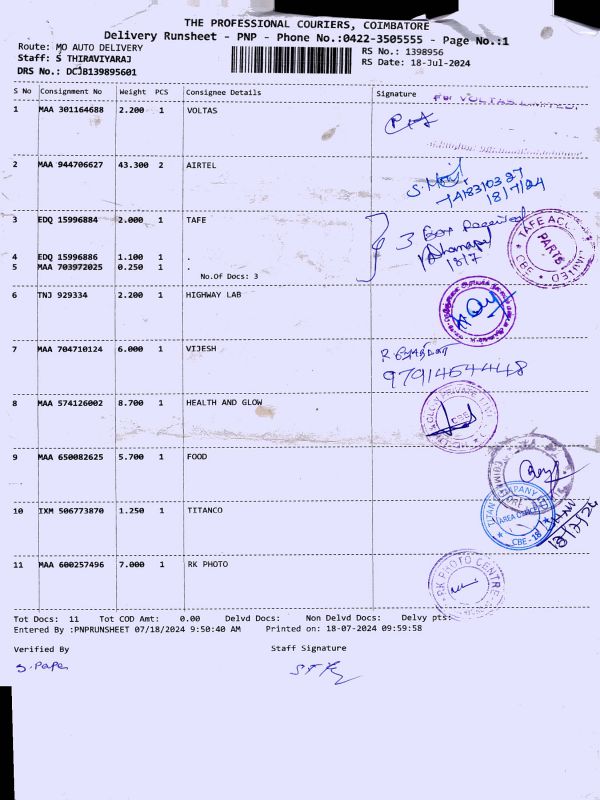 THE PROFESSIONAL COURIERS, COIMBATORE
Delivery Runsheet - PNP - Phone No.:0422-3505555 - Page No.:1
Route: MO AUTO DELIVERY RS No.: 1398956
Staff: S THIRAVIYARAJ RS Date: 18-Jul-2024
DRS No.: DCJB139895601
S No Consignment No Weight PCS Consignee Details Signature
For VOLTAS LIMITED.
1 MAA 301164688 2.200 1 VOLTAS
2 MAA 944706627 43.300 2 AIRTEL
18/7/24
3 EDQ 15996884 2.000 1 TAFE
3 Box Received
18/7
TAFE ACC
PARTS
LIMITED
CBE
4 EDQ 15996886 1.100 1 .
5 MAA 703972025 0.250 1 .
No.Of Docs: 3
6 TNJ 929334 2.200 1 HIGHWAY LAB
7 MAA 704710124 6.000 1 VIJESH
8 MAA 574126002 8.700 1 HEALTH AND GLOW
CBE
9 MAA 650082625 5.700 1 FOOD
10 IXM 506773870 1.250 1 TITANCO
TITAN COMPANY LTD
AREA OFFICE
CBE - 18
11 MAA 600257496 7.000 1 RK PHOTO
RK PHOTO CENTRE
Tot Docs: 11 Tot COD Amt: 0.00 Delvd Docs: Non Delvd Docs: Delvy pts:
Entered By :PNPRUNSHEET 07/18/2024 9:50:40 AM Printed on: 18-07-2024 09:59:58
Verified By Staff Signature